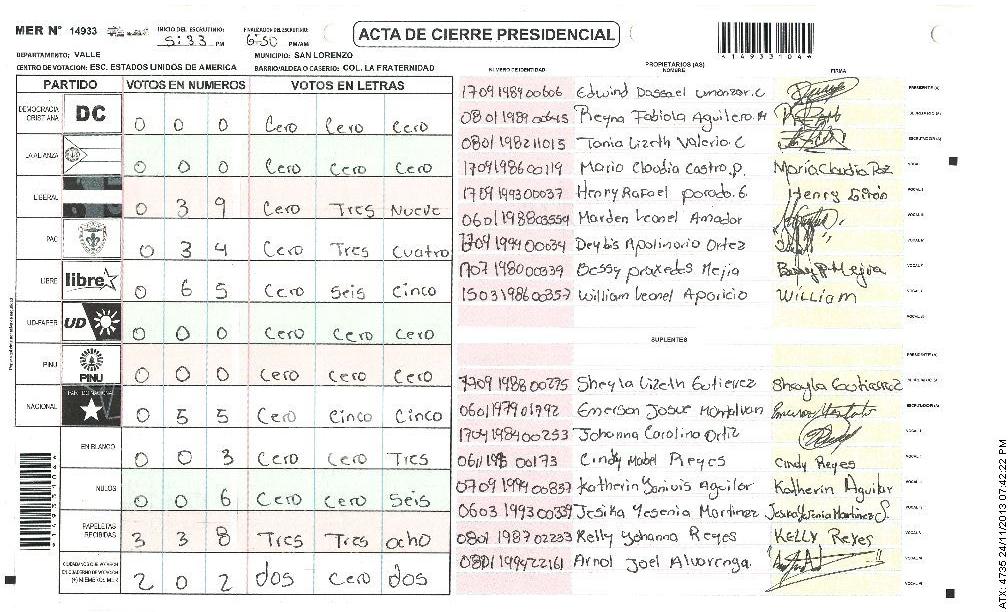 MER N° 14933 INICIO DEL ESCRUTINIO: 5:33 PM FINALIZACION DEL ESCRUTINIO: 6:50 PM/AM
ACTA DE CIERRE PRESIDENCIAL
41493310 4
DEPARTAMENTO: VALLE MUNICIPIO: SAN LORENZO
CENTRO DE VOTACION: ESC. ESTADOS UNIDOS DE AMERICA BARRIO/ALDEA O CASERIO: COL. LA FRATERNIDAD
PARTIDO VOTOS EN NUMEROS VOTOS EN LETRAS
DEMOCRACIA CRISTIANA DC 0 0 0 Cero Cero Cero
LA ALIANZA 0 0 0 Cero Cero Cero
LIBERAL 0 3 9 Cero Tres Nueve
PAC 0 3 4 Cero Tres Cuatro
LIBRE libre 0 6 5 Cero Seis Cinco
UD-FAPER UD 0 0 0 Cero Cero Cero
PINU PINU 0 0 0 Cero Cero Cero
NACIONAL 0 5 5 Cero Cinco Cinco
EN BLANCO 0 0 3 Cero Cero Tres
NULOS 0 0 6 Cero Cero Seis
PAPELETAS RECIBIDAS 3 3 8 Tres Tres ocho
CIUDADANOS QUE VOTARON EN CUADERNO DE VOTACION (+) MIEMBROS MER 2 0 2 dos Cero dos
PROPIETARIOS (AS)
NUMERO DE IDENTIDAD NOMBRE FIRMA
1709198900606 Edwind Dassael umanzor.c PRESIDENTE (A)
0801198900645 Reyna Fabiola Aguilera M SECRETARIO (A)
0801198211013 Tania Lizeth Valerio C ESCRUTADOR (A)
1709198600119 Mario Claudia Castro.p. María Claudia Paz VOCAL I
1709199300037 Henry Rafael parada.G Henry Girón VOCAL II
0601198803554 Marden Leonel Amador
1709199400034 Deybis Apolinario Ortez
1707198000339 Bessy praxedes Mejia Bessy P Mejia
1503198600357 William Leonel Aparicio WILLIAM
SUPLENTES
PRESIDENTE (A)
1709198800275 Sheyla Lizeth Gutierrez Sheyla Gutierrez SECRETARIO (A)
0601197901992 Emerson Josue Montalvan ESCRUTADOR (A)
1704198400253 Johanna Carolina Ortiz
00173 Cindy Mabel Reyes Cindy Reyes
0709199400837 Katherin Aguilar Katherin Aguilar
0603199300339 Jesika Yesenia Martinez Jesika Yesenia Martinez S.
0801198702233 Kelly Yohanna Reyes KELLY Reyes
0801199422161 Arnol Joel Alvarenga.
ATX: 4735 24/11/2013 07:42:22 PM